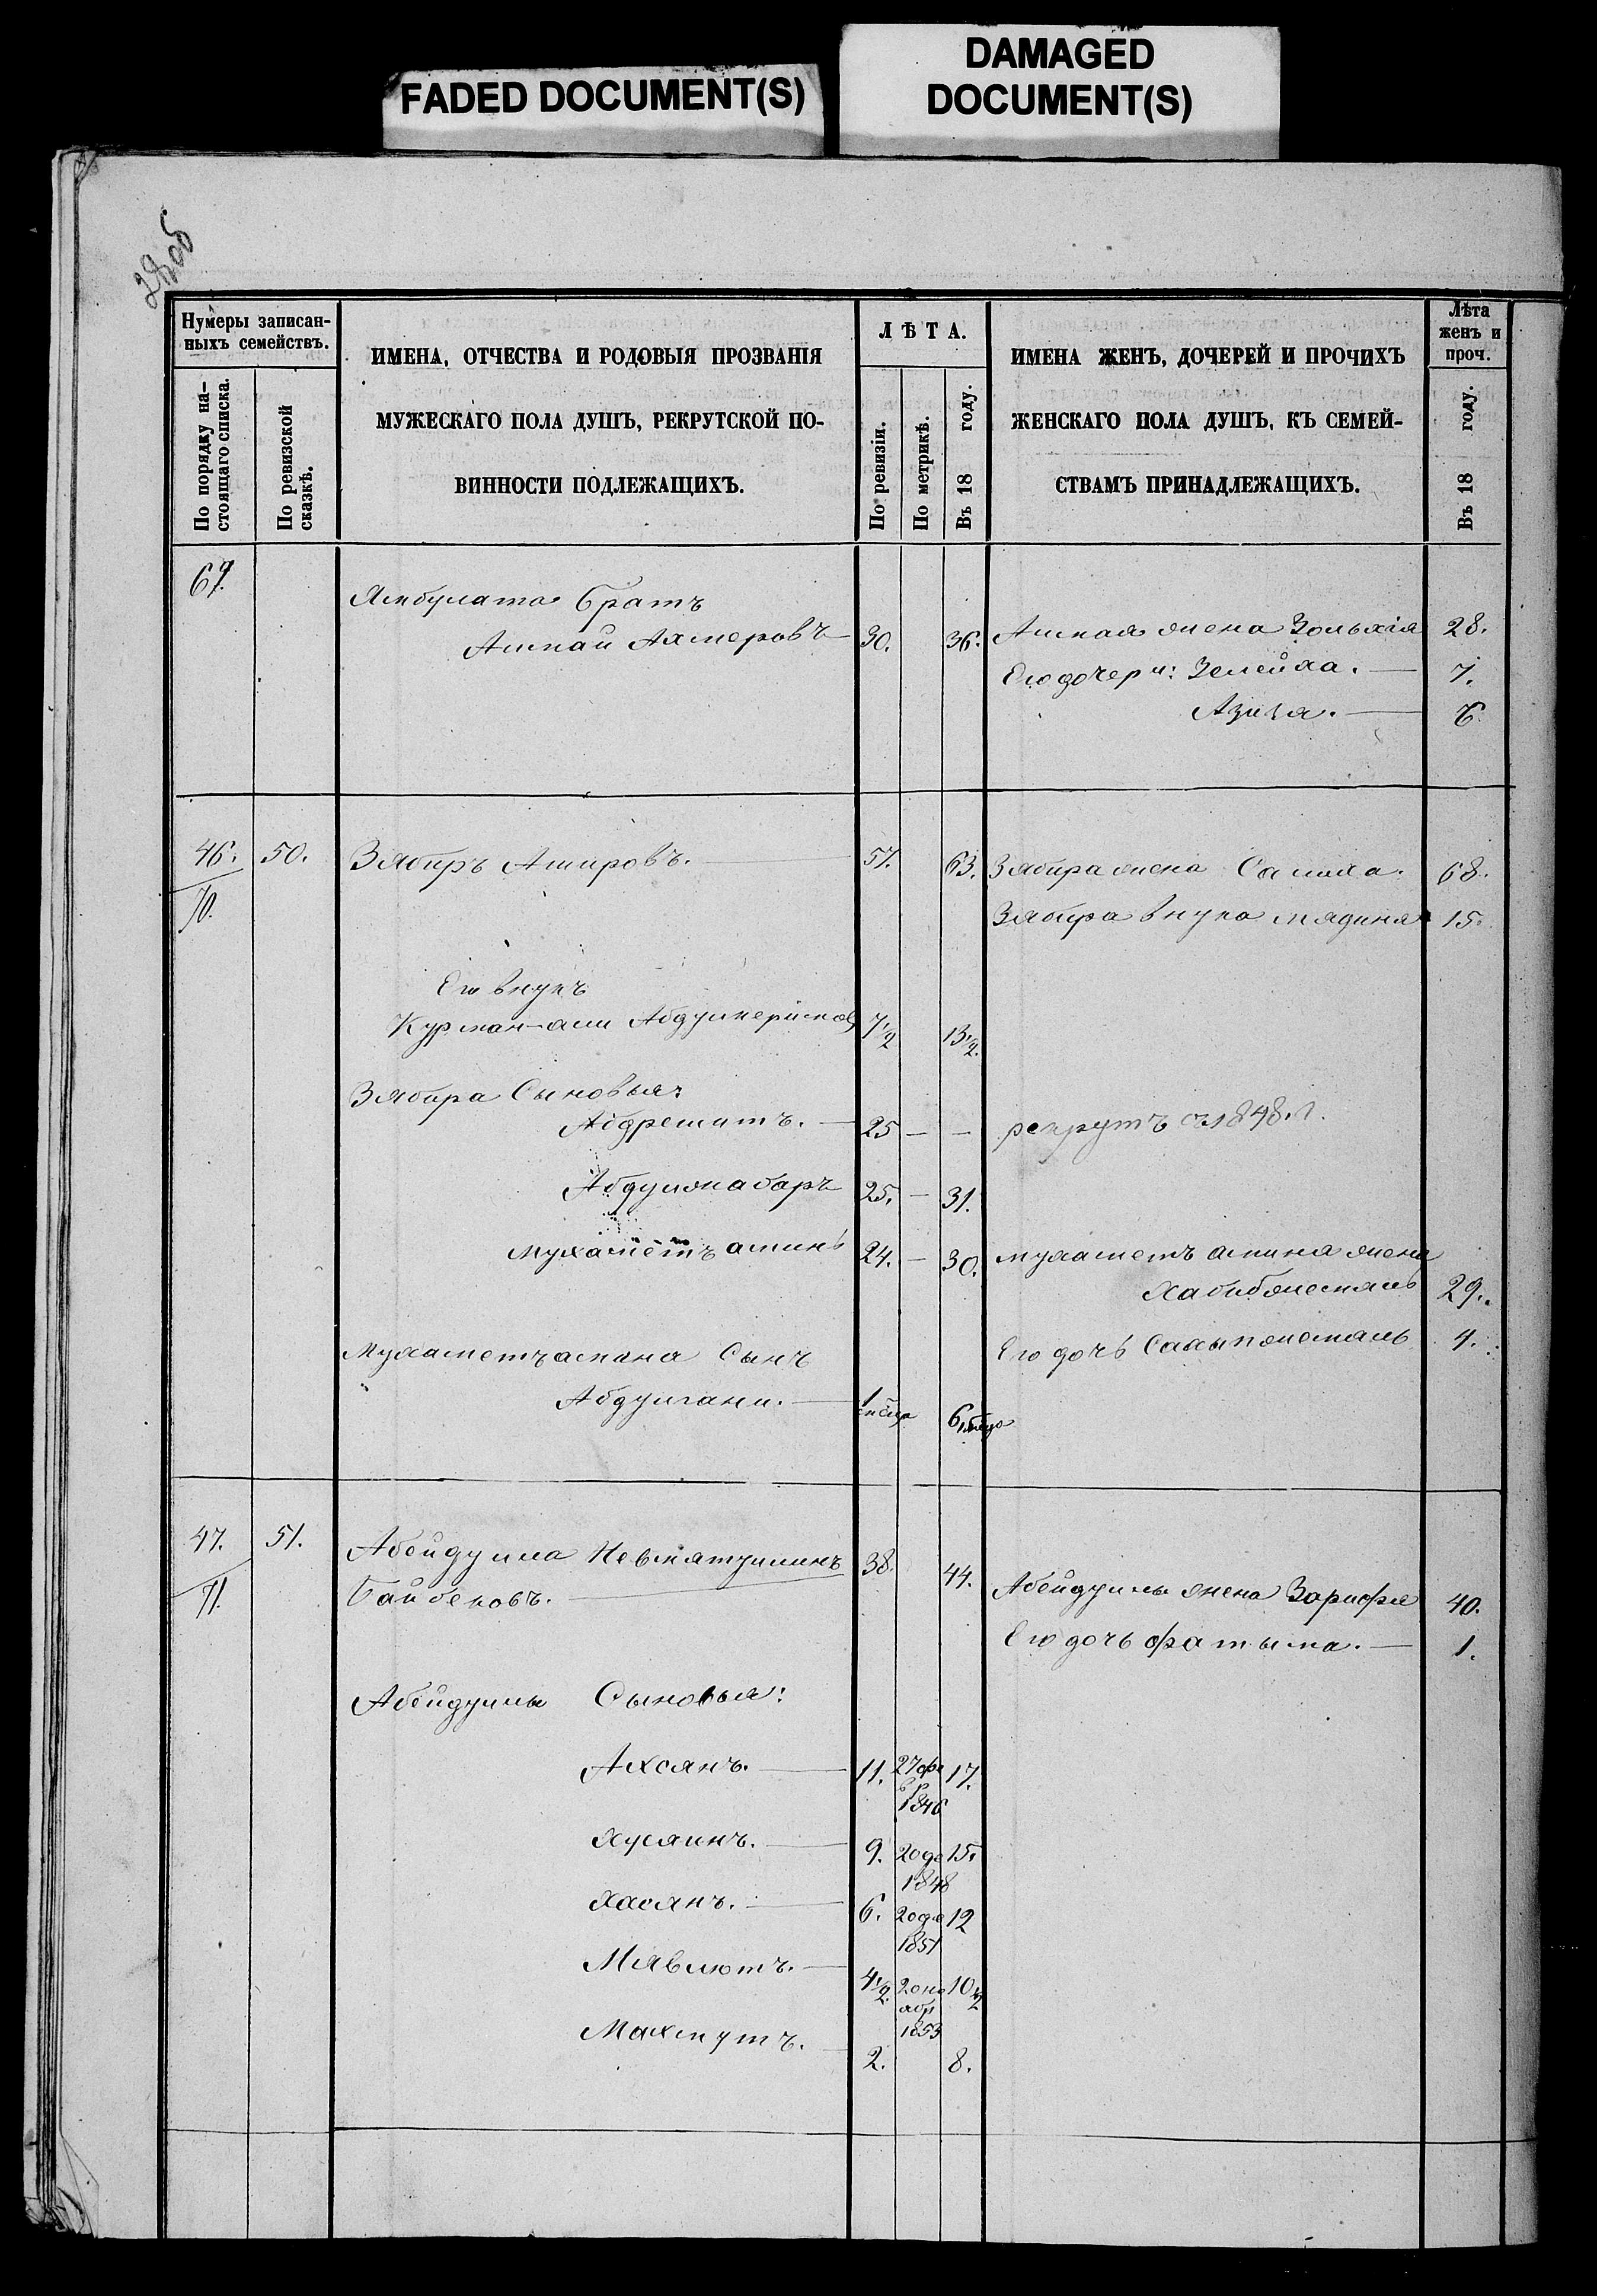 FADED DOCUMENT(S)
DAMAGED
DOCUMENT(S)
28об
Нумеры записан-
ныхъ семействъ.
По порядку на-
стоящаго списка.
По ревизской
сказкѣ.
ИМЕНА, ОТЧЕСТВА И РОДОВЫЯ ПРОЗВАНІЯ
МУЖЕСКАГО ПОЛА ДУШЪ, РЕКРУТСКОЙ ПО-
ВИННОСТИ ПОДЛЕЖАЩИХЪ.
ЛѢТА.
По ревизіи.
По метрикѣ.
Въ 18 году.
ИМЕНА ЖЕНЪ, ДОЧЕРЕЙ И ПРОЧИХЪ
ЖЕНСКАГО ПОЛА ДУШЪ, КЪ СЕМЕЙ-
СТВАМЪ ПРИНАДЛЕЖАЩИХЪ.
Лѣта
женъ и
проч.
Въ 18 году.
Ямбулата братъ
30. 36. жена Зюльхія 28.
Его дочери: Зелейха. 7.
Азиза. 6.
46. 50. Зябиръ Амировъ. 57. 63. Зябира жена Салиха. 68.
70. Зябира внука Мядиня 15.
Его внукъ
Курман-али Абдулкеримов 7½ 13½.
Зябира Сыновья:
Абдрешитъ. 25 — — рекрутъ съ 1848. г.
Абдулжабаръ 25. — 31.
Мухаметъ аминъ 24. — 30. Мухаметъ амина жена
Хабибжемаль 29.
Мухаметъ амина Сынъ Его дочь 4.
Абдулгани. 1 6
47. 51. Абейдулла Невматуллинъ 38. 44.
71. Байбековъ. Абейдуллы жена Зарифа 40.
Его дочь Фатыма. 1.
Абейдуллы Сыновья:
Ахсянъ. 11. 27 фе 17.
вр
1846
Хусяинъ. 9. 20 де 15.
1848
Хасянъ. 6. 20 де 12
1851
Мявлютъ. 4½. 20 но 10½
ябр
1853
Махмутъ. 2. 8.